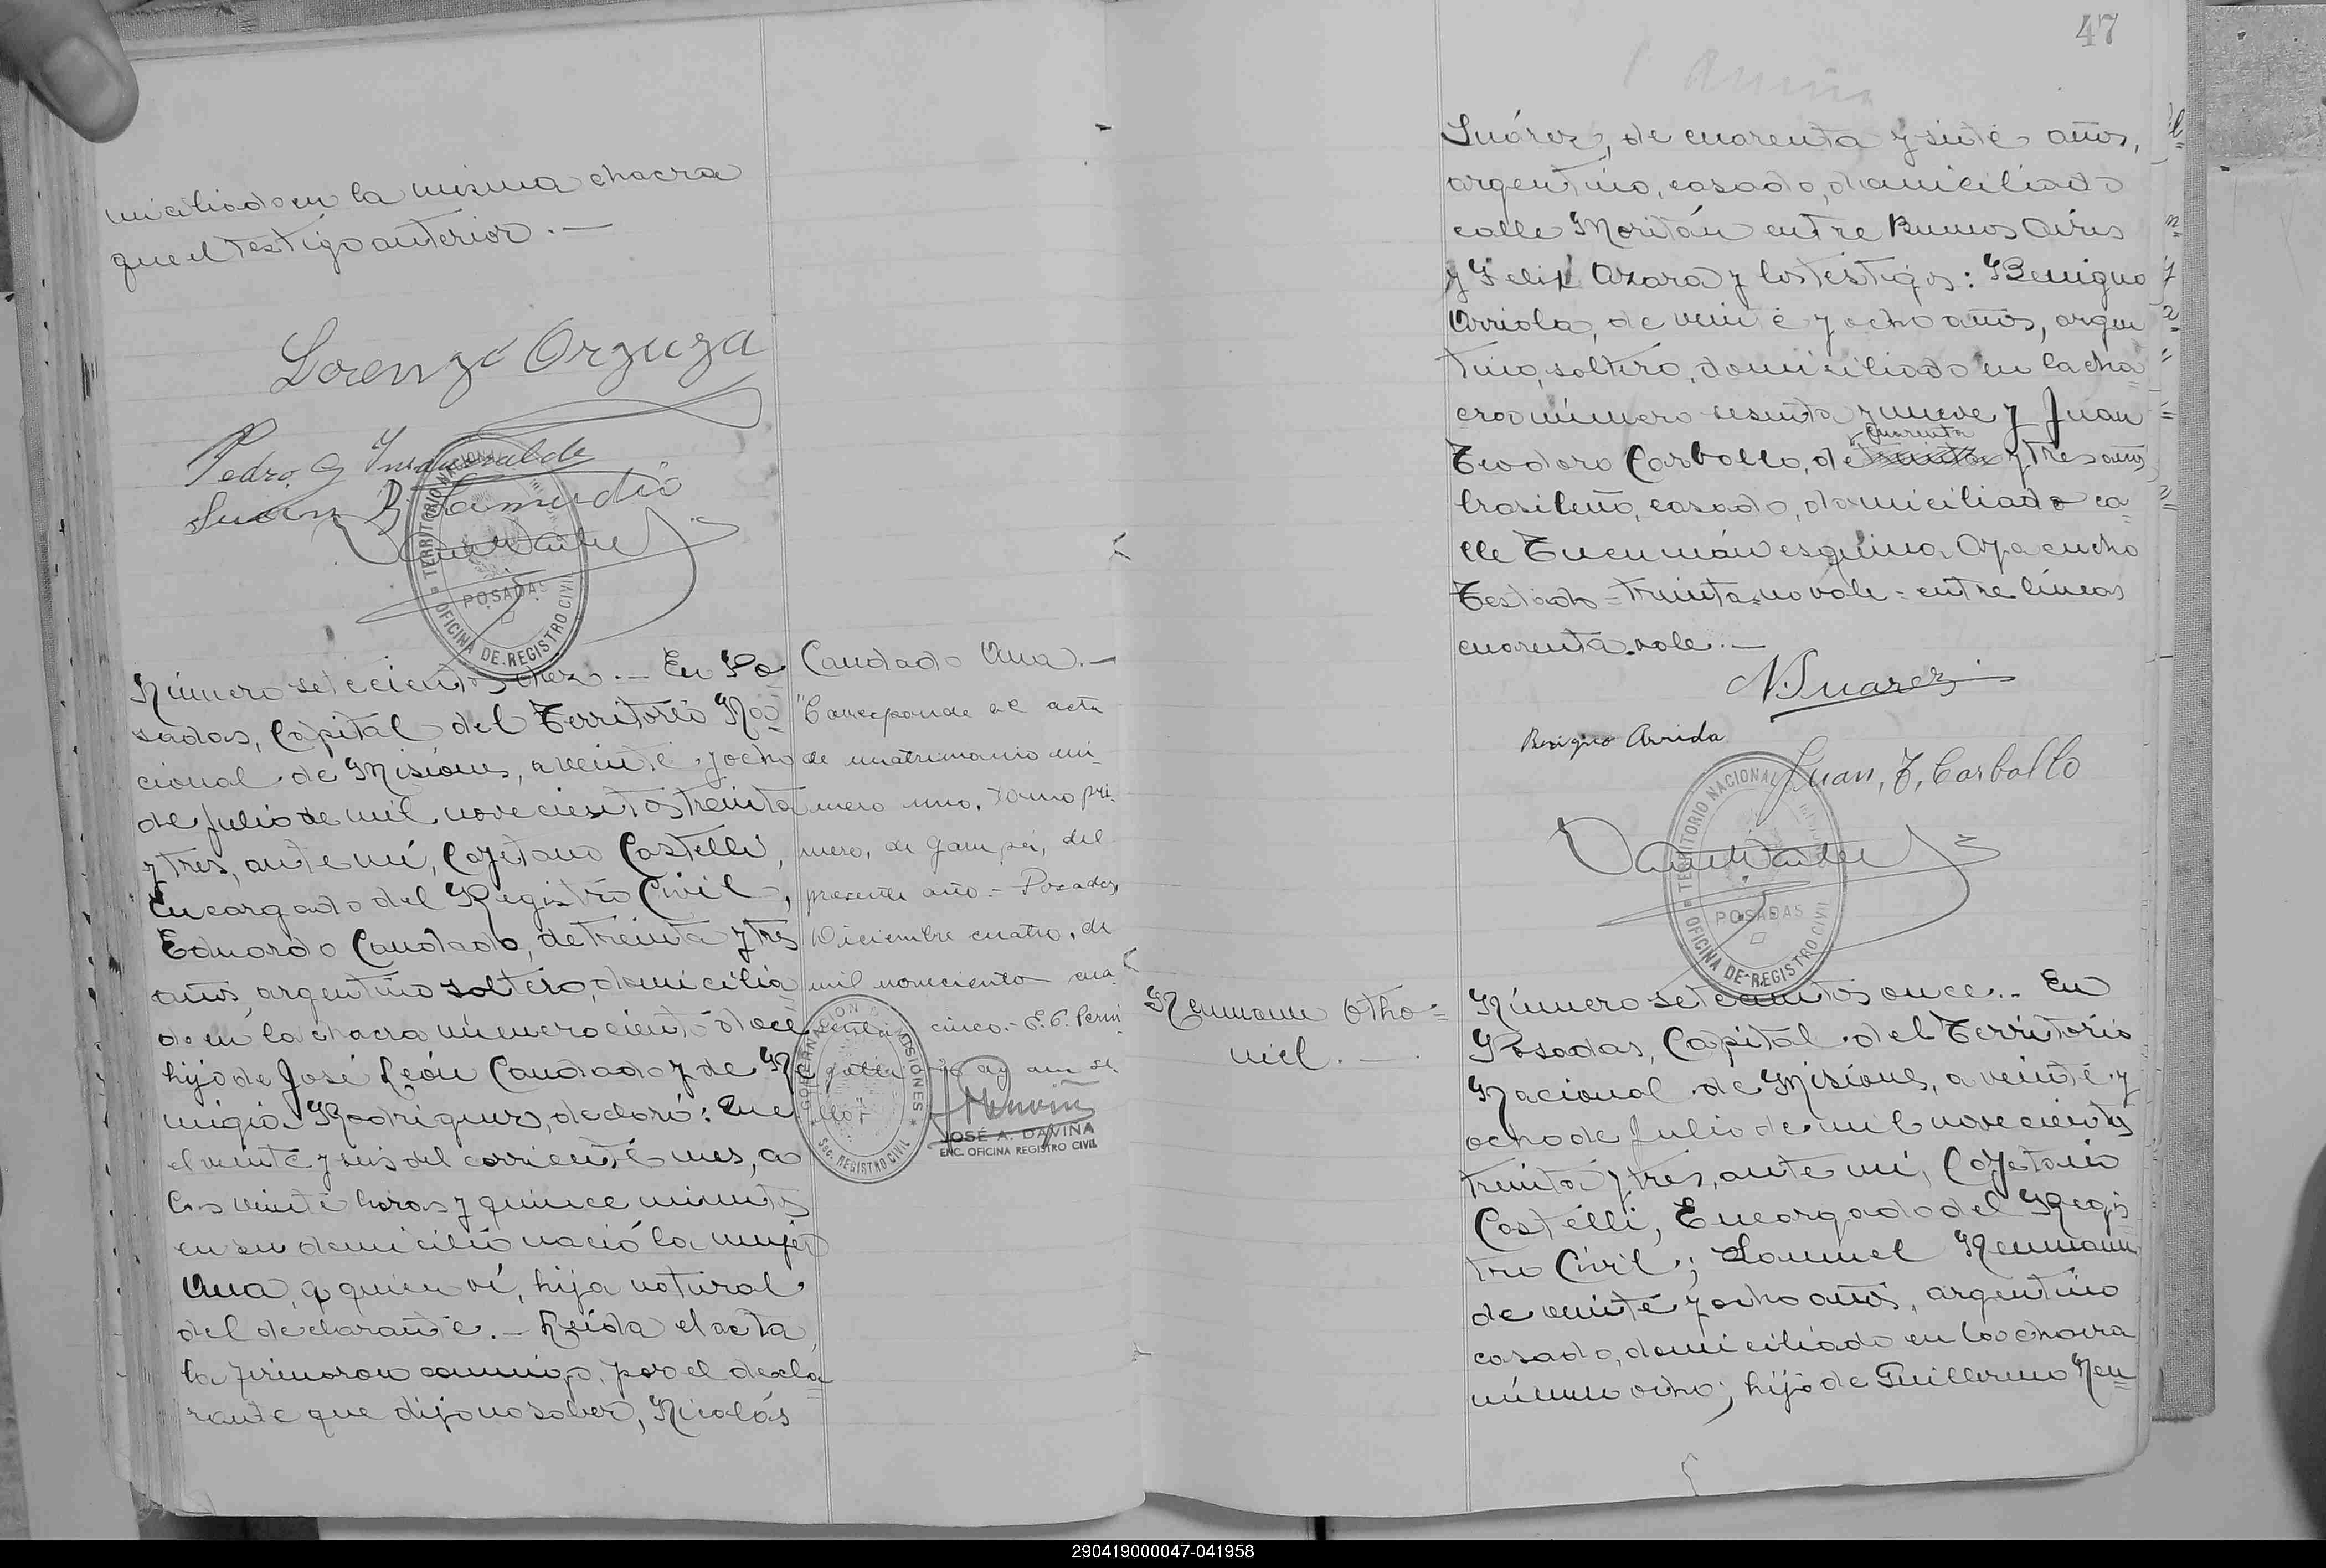 miciliado en la misma chacra
que el testigo anterior.—
Lorenzo Orzuza
Pedro G Insaurralde
Juan B. Zamudio
TERRITORIO NACIONAL
POSADAS
OFICINA DE REGISTRO CIVIL
Número setecientos diez.— En Po
sadas, Capital del Territorio Na=
cional de Misiones, a veinte y ocho
de Julio de mil novecientos treinta
y tres, ante mí, Cayetano Castelli,
Encargado del Registro Civil,
Eduardo Candado, de treinta y tres
años, argentino soltero, domicilia=
do en la chacra número ciento doce
hijo de José León Candado y de
migia Rodriguez, declaró: Que
el veinte y seis del corriente mes, a
las veinte horas y quince minutos
en su domicilio nació la mujer
Ana, a quien ví, hija natural
del declarante.— Leida el acta
la firmaron conmigo, por el decla=
rante que dijo no saber, Nicolás
Candado Ana.—
Corresponde al acta
de matrimonio nú-
mero uno, tomo pri-
mero, de Garupá, del
presente año.— Posadas,
Diciembre cuatro, de
mil novecientos cua
renta cinco.-
GOBERNACION DE MISIONES
SEC. REGISTRO CIVIL
JOSÉ A. DAVIÑA
ENC. OFICINA REGISTRO CIVIL
47
Suárez, de cuarenta y siete años,
argentino, casado, domiciliado
calle Moritán entre Buenos Aires
y Felix Azara y los testigos: Benigno
Arriola, de veinte y ocho años, argen
tino, soltero, domiciliado en la cha=
cra número sesenta y nueve y Juan
cuarenta
Teodoro Carballo, de treinta y tres años
brasileño, casado, domiciliado ca=
lle Tucumán esquina Ayacucho
Testado = treinta. no vale - entre líneas
cuarenta. vale.—
N. Suarez
Benigno Arriola
Juan, T, Carballo
TERRITORIO NACIONAL
POSADAS
OFICINA DE REGISTRO CIVIL
Neumann Otho=
niel.—
Número setecientos once.- En
Posadas, Capital del Territorio
Nacional de Misiones, a veinte y
ocho de Julio de mil novecientos
treinta y tres, ante mí, Cayetano
Castelli, Encargado del Regis
tro Civil; Samuel Neumann
de veinte y ocho años, argentino
casado, domiciliado en la chacra
número ocho; hijo de Guillermo Neu=
290419000047-041958